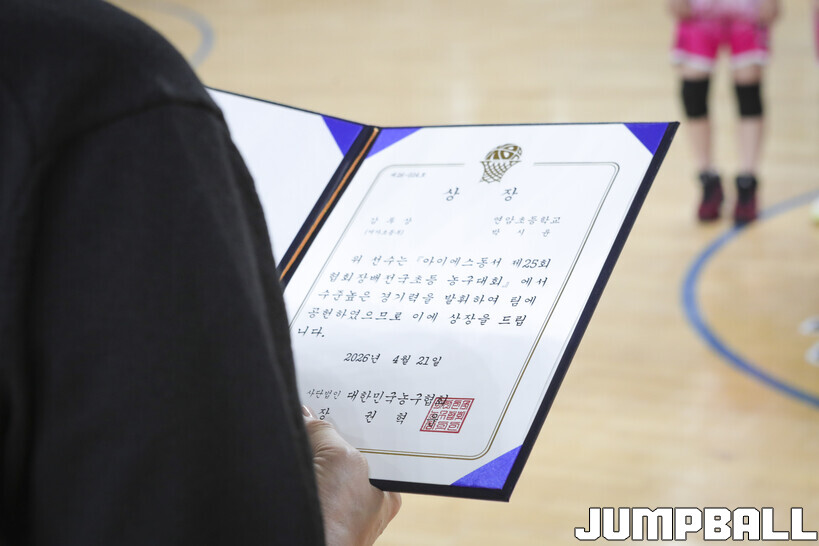 상 장
감 투 상 연암초등학교
(여자초등부) 박 시 윤
위 선수는 「아이에스동서 제25회
협회장배전국초등 농구대회」 에서
수준높은 경기력을 발휘하여 팀에
공헌하였으므로 이에 상장을 드립
니다.
2026년 4월 21일
사단법인 대한민국농구협회
장 권 혁
JUMPBALL